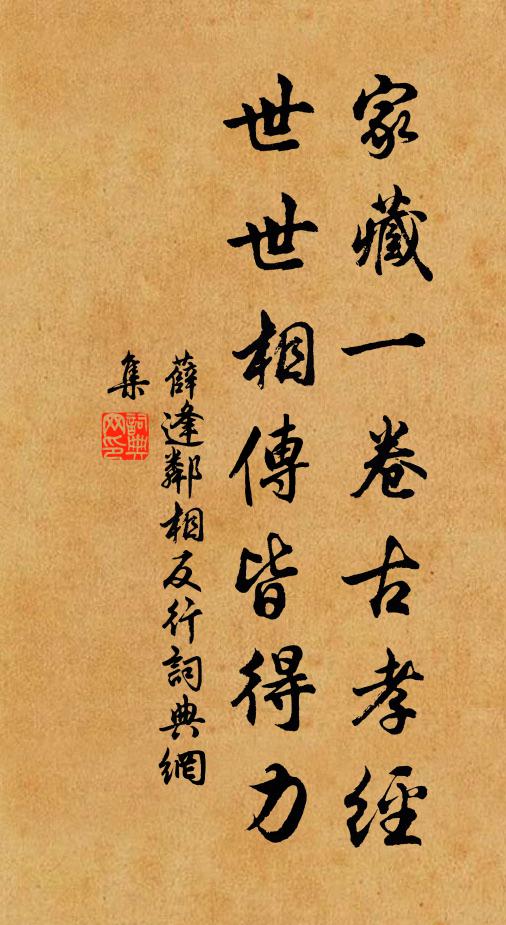 家藏一卷古孝經
世世相傳皆得力
薛逢鄰相反行詞典網
集
詞典網印